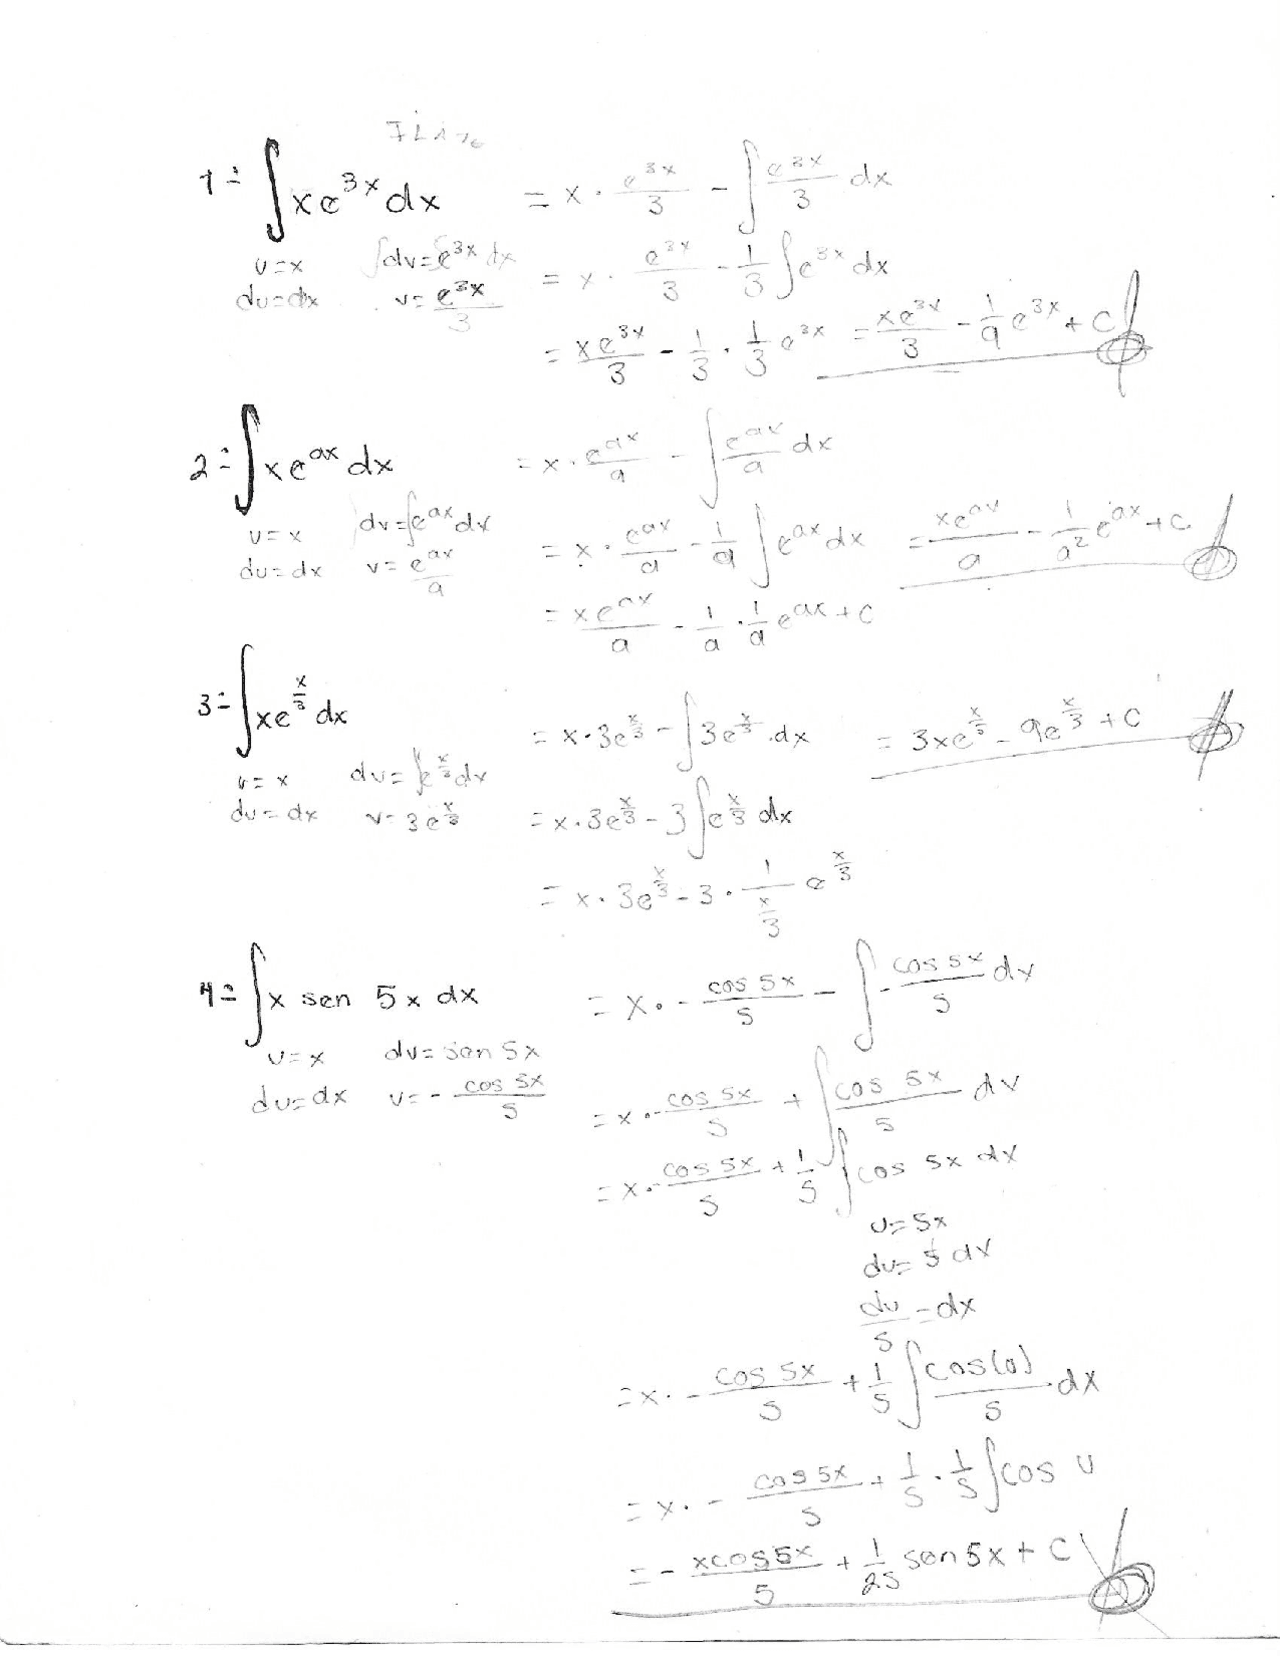 ILATE
1÷ ∫xe^{3x}dx = x · e^{3x}/3 - ∫ e^{3x}/3 dx
u=x ∫dv=∫e^{3x}dx = x · e^{3x}/3 - 1/3 ∫e^{3x}dx
du=dx v= e^{3x}/3
= xe^{3x}/3 - 1/3 · 1/3 e^{3x} = xe^{3x}/3 - 1/9 e^{3x} + C
2÷ ∫xe^{ax}dx = x · e^{ax}/a - ∫ e^{ax}/a dx
u=x dv=∫e^{ax}dx
du=dx v= e^{ax}/a = x · e^{ax}/a - 1/a ∫e^{ax}dx = xe^{ax}/a - 1/a² e^{ax} + C
= xe^{ax}/a - 1/a · 1/a e^{ax} + C
3÷ ∫xe^{x/3}dx = x·3e^{x/3} - ∫3e^{x/3}.dx = 3xe^{x/3} - 9e^{x/3} + C
u=x dv=∫e^{x/3}dx
du=dx v=3e^{x/3} = x·3e^{x/3} - 3∫e^{x/3}dx
= x·3e^{x/3} - 3 · 1/(x/3) e^{x/3}
4÷ ∫x sen 5x dx = x · - cos 5x/5 - ∫ - cos 5x/5 dx
u=x dv=sen 5x
du=dx v= - cos 5x/5 = x · - cos 5x/5 + ∫ cos 5x/5 dx
= x · - cos 5x/5 + 1/5 ∫cos 5x dx
u=5x
du=5 dx
du/5 = dx
= x · - cos 5x/5 + 1/5 ∫ cos(u)/5 · dx
= x · - cos 5x/5 + 1/5 · 1/5 ∫cos u
= - xcos5x/5 + 1/25 sen5x + C